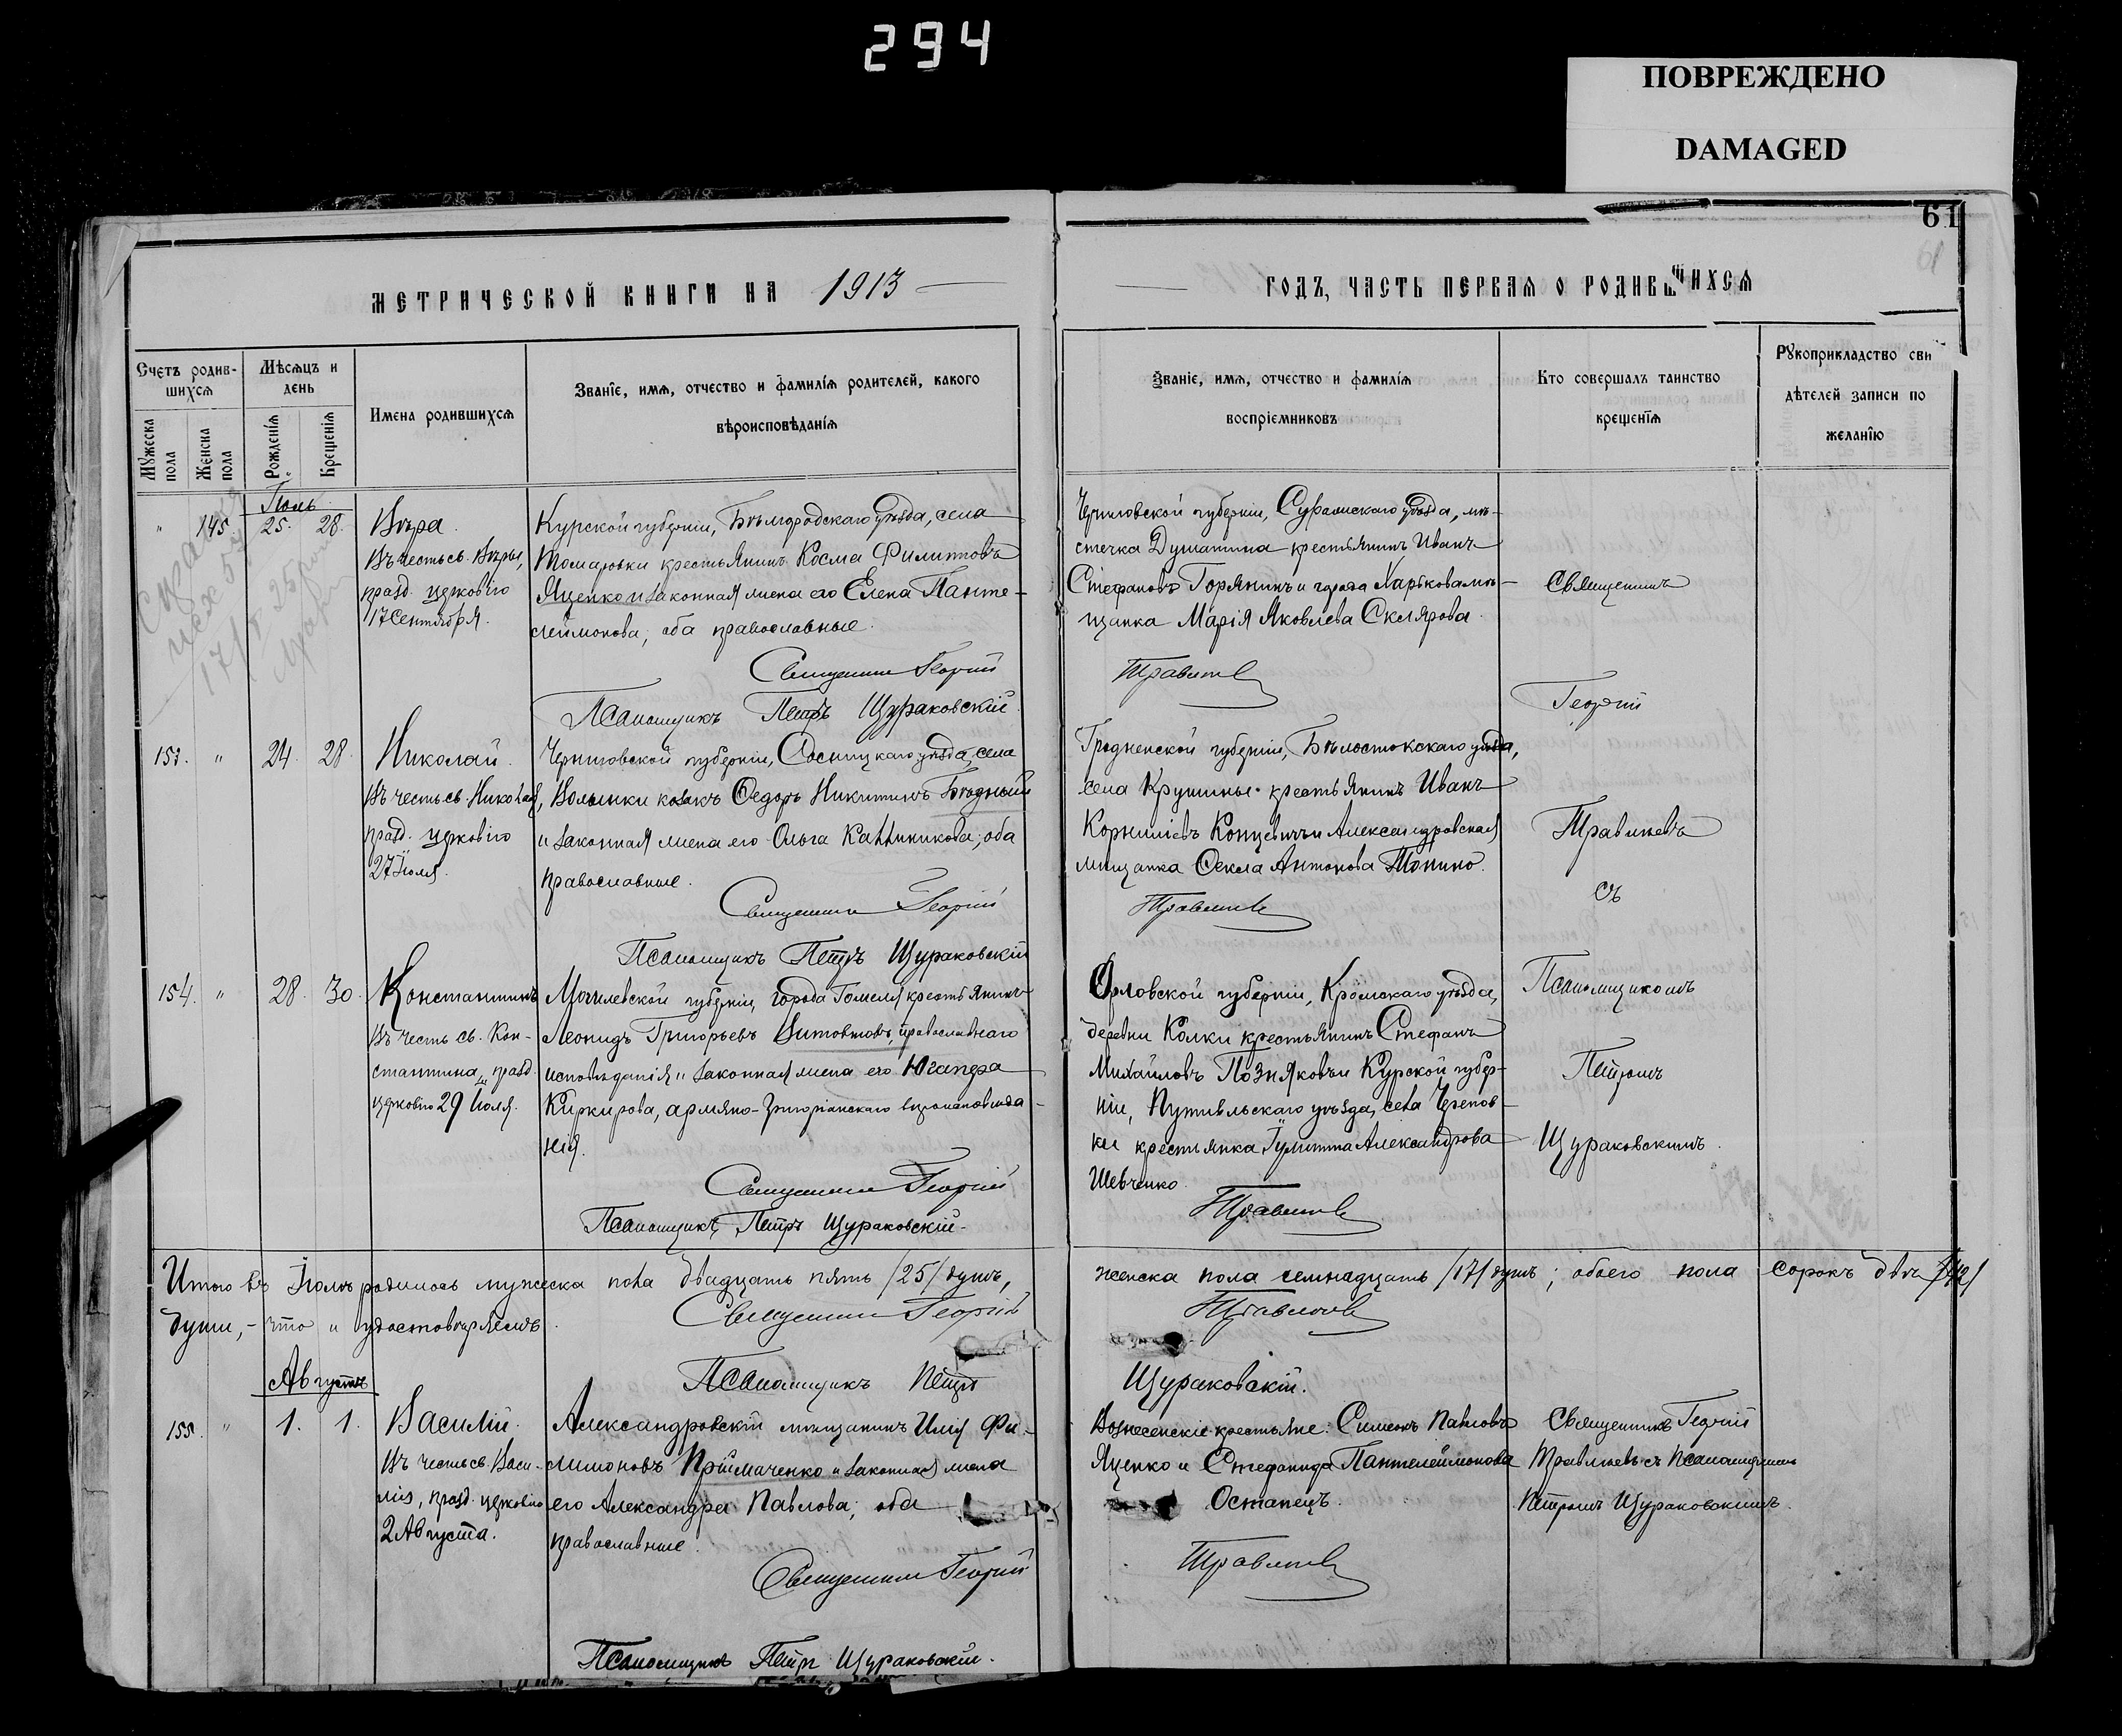 294
ПОВРЕЖДЕНО
DAMAGED
61
61
МЕТРИЧЕСКОЙ КНИГИ НА 1913
ГОДЪ, ЧАСТЬ ПЕРВАЯ О РОДИВШИХСЯ
Счетъ родив-
шихся
Мужеска пола
Женска пола
Мѣсяцъ и
день
Рожденія
Крещенія
Имена родившихся
Званіе, имя, отчество и фамилія родителей, какого
вѣроисповѣданія
Званіе, имя, отчество и фамилія
воспріемниковъ
Кто совершалъ таинство
крещенія
Рукоприкладство сви
дѣтелей записи по
желанію
Іюль
" 145. 25. 28.
Вѣра.
Въ честь св. Вѣры,
празд. церковію
17 Сентября.
Курской губерніи, Бѣлгородскаго уѣзда, села
Томаровки крестьянинъ Косма Филиповъ
Яценко и законная жена его Елена Панте-
леймонова, оба православные.
Священникъ Георгій
Псаломщикъ Петръ Щураковскій
Черниговской губерніи, Суражскаго уѣзда, мѣ-
стечка Душатина крестьянинъ Иванъ
Стефановъ Горянинъ и города Харькова мѣ-
щанка Марія Яковлева Склярова.
Травлѣевъ
Священникъ
Георгій
Травлѣевъ
съ
Псаломщикомъ
Петромъ
Щураковскимъ.
153. " 24. 28.
Николай.
Въ честь св. Николая,
празд. церковію
27 Іюля.
Черниговской губерніи, Сосницкаго уѣзда, села
Волынки козакъ Ѳедоръ Никитинъ Бѣдный
и законная жена его Ольга Каллиникова, оба
православные.
Священникъ Георгій
Псаломщикъ Петръ Щураковскій
Гродненской губерніи, Бѣлостокскаго уѣзда,
села Крушины крестьянинъ Иванъ
Корниліевъ Концевичъ и Александровская
мѣщанка Ѳекла Антонова Тонино.
Травлѣевъ
154. " 28. 30.
Константинъ
Въ честь св. Кон-
стантина, празд.
церковію 29 Іюля.
Могилевской губерніи, города Гомеля крестьянинъ
Леонидъ Григорьевъ Витовтовъ, православнаго
исповѣданія и законная жена его Югапера
Киркирова, армяно-григоріанскаго вѣроисповѣда-
нія.
Священникъ Георгій
Псаломщикъ Петръ Щураковскій.
Орловской губерніи, Кромскаго уѣзда,
деревни Колки крестьянинъ Стефанъ
Михайловъ Позняковъ и Курской губер-
ніи, Путивльскаго уѣзда, села Черепов-
ки крестьянка Іулитта Александрова
Шевченко.
Травлѣевъ
Итого въ Іюлѣ родилось мужеска пола двадцать пять /25/ душъ, женска пола семнадцать /17/ душъ; обоего пола сорокъ двѣ /42/
души, – что и удостовѣряемъ.
Священникъ Георгій Травлѣевъ
Псаломщикъ Петръ Щураковскій.
Августъ
155. " 1. 1.
Василій.
Въ честь св. Васи-
лія, празд. церковію
2 Августа.
Александровскій мѣщанинъ Илія Фи-
лимоновъ Приймаченко и законная жена
его Александра Павлова; оба
православные.
Священникъ Георгій
Псаломщикъ Петръ Щураковскій.
Вознесенскіе крестьяне: Симеонъ Павловъ
Яценко и Стефанида Пантелеймонова
Остапецъ.
Травлѣевъ
Священникъ Георгій
Травлѣевъ съ Псаломщикомъ
Петромъ Щураковскимъ.